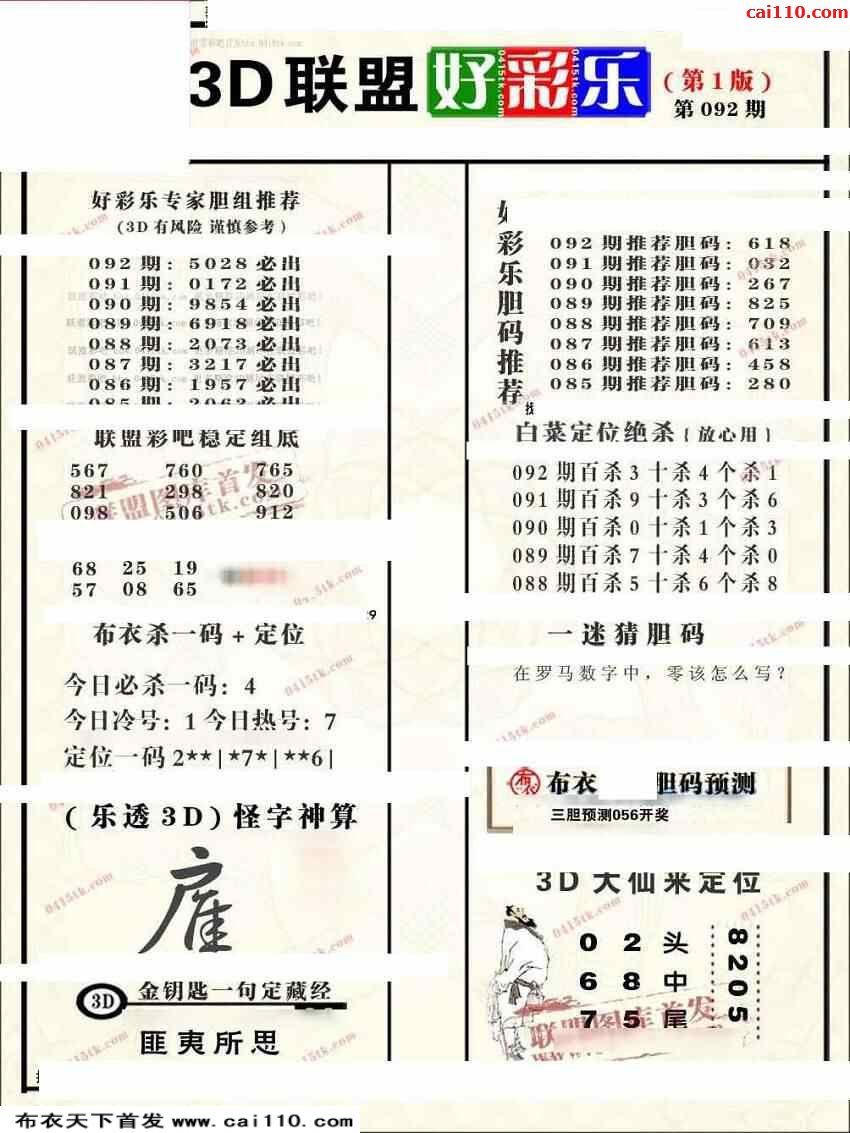 cai110.com
3D联盟 好彩乐
(第1版)
第 092 期
好彩乐专家胆组推荐
(3D有风险 谨慎参考)
092期: 5028必出
091期: 0172必出
090期: 9854必出
089期: 6918必出
088期: 2073必出
087期: 3217必出
086期: 1957必出
085期: 2063必出
联盟彩吧稳定组底
567 760 765
821 298 820
098 506 912
68 25 19
57 08 65
布衣杀一码+定位
今日必杀一码: 4
今日冷号: 1 今日热号: 7
定位一码 2**|*7*|**6|
(乐透3D) 怪字神算
3D 金钥匙一句定藏经
匪夷所思
好彩乐胆码推荐
092期推荐胆码: 618
091期推荐胆码: 032
090期推荐胆码: 267
089期推荐胆码: 825
088期推荐胆码: 709
087期推荐胆码: 613
086期推荐胆码: 458
085期推荐胆码: 280
白菜定位绝杀 {放心用}
092期百杀3十杀4个杀1
091期百杀9十杀3个杀6
090期百杀0十杀1个杀3
089期百杀7十杀4个杀0
088期百杀5十杀6个杀8
一迷猜胆码
在罗马数字中，零该怎么写?
布衣 胆码预测
三胆预测056开奖
3D大仙来定位
0 2 头
6 8 中
7 5 尾
8205
联盟图库首发
0415tk.com
布衣天下首发 www.cai110.com